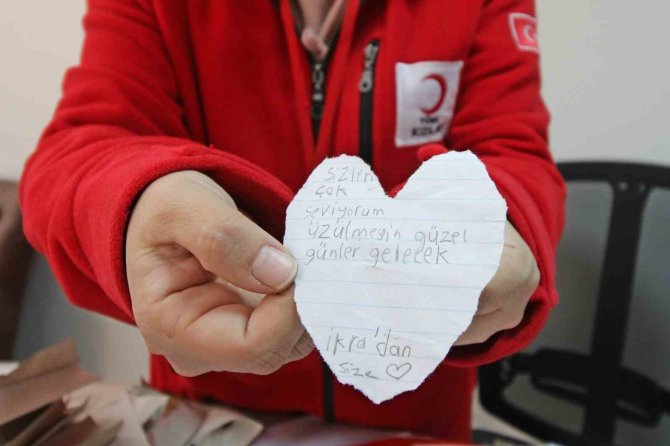 sizleri
çok
seviyorum
üzülmeyin güzel
günler gelecek
ikra'dan
size
TÜRK
KIZILAY